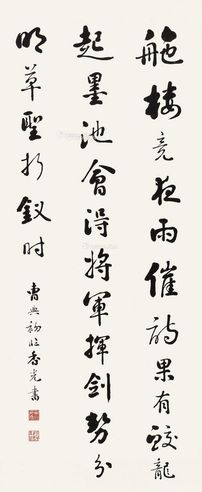 舵楼竟夜雨催诗果有蛟龍
起墨池會得将軍揮剑势分
明草聖折釵时
曹典初临香光書